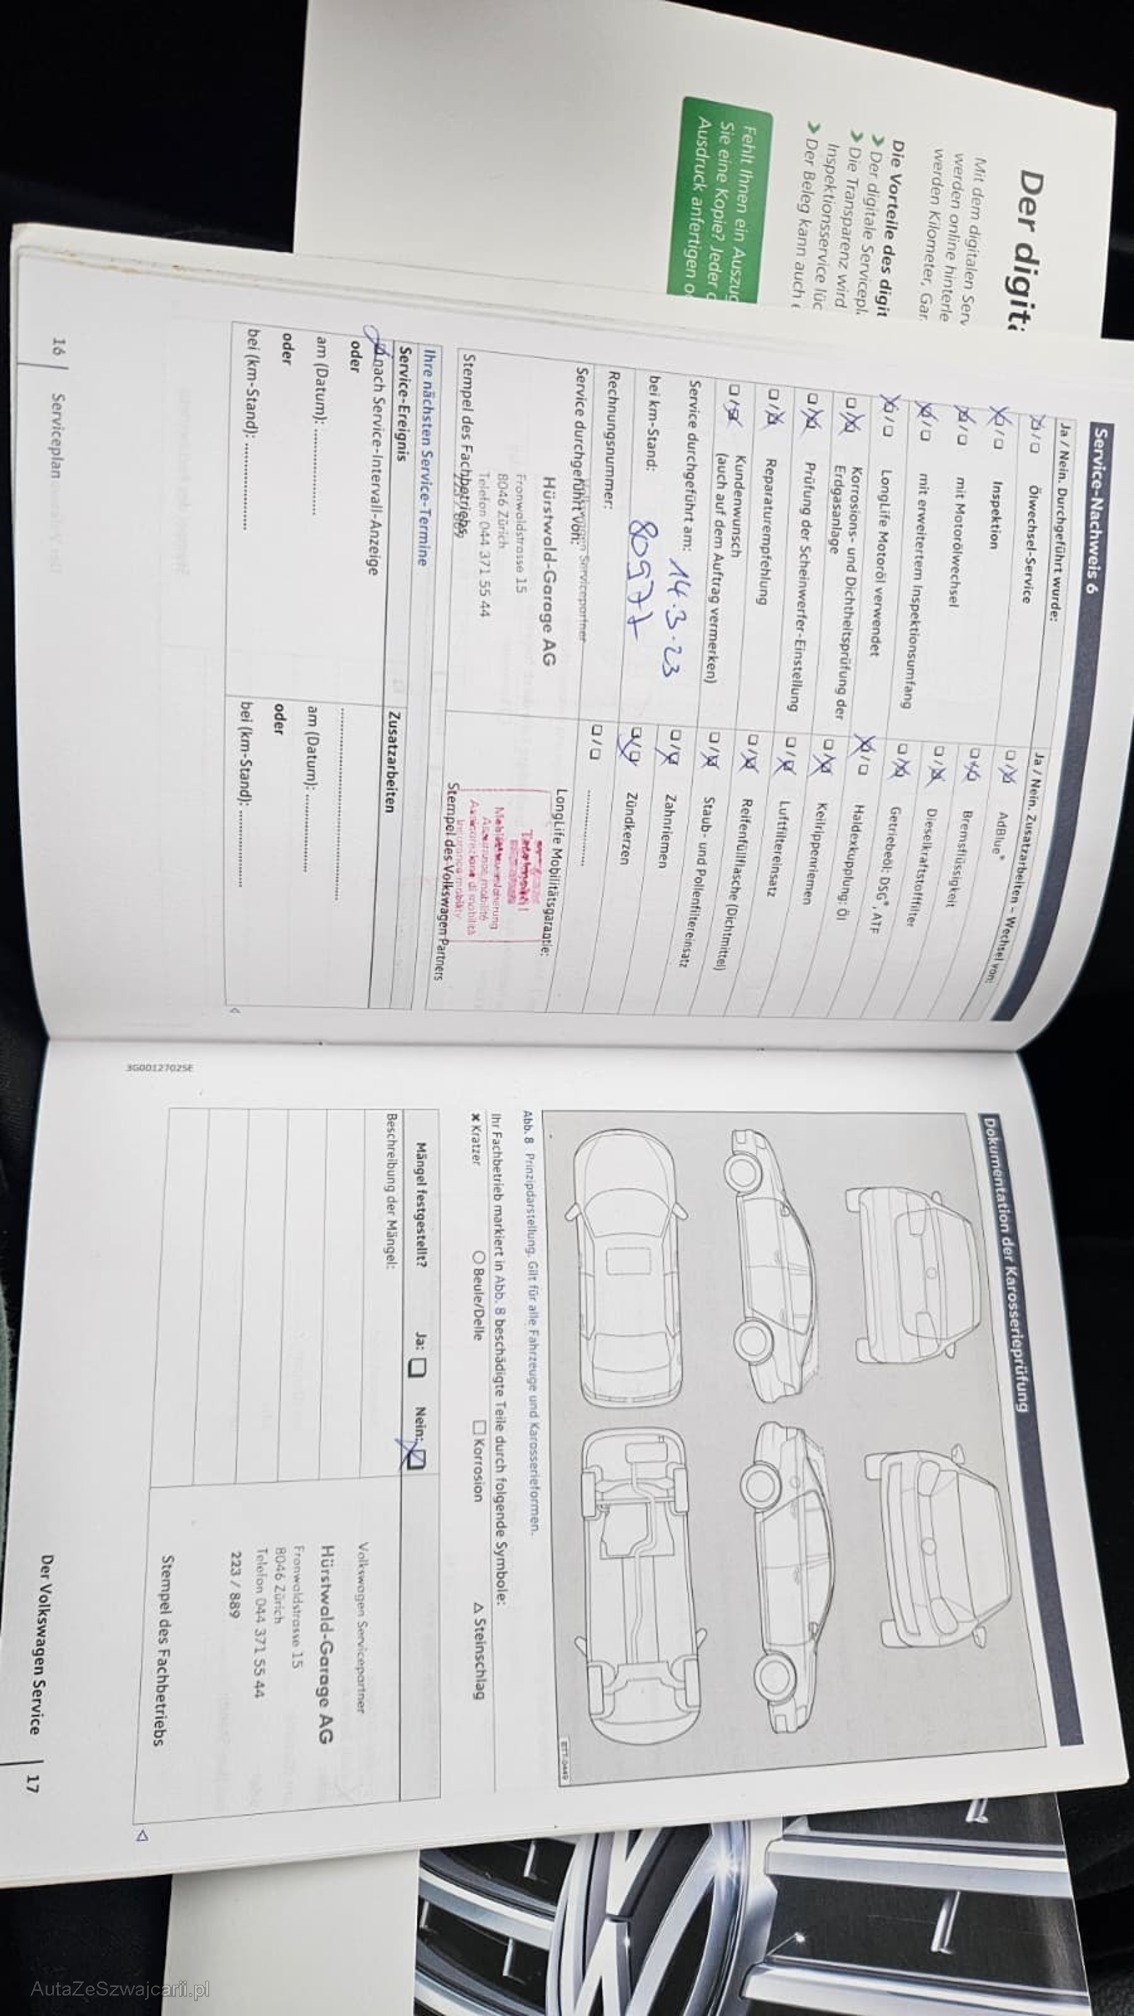 Der digita
Mit dem digitalen Serv
werden online hinterle
werden Kilometer, Gar
Die Vorteile des digit
Der digitale Servicepl
Die Transparenz wird
Inspektionsservice lüc
Der Beleg kann auch
Fehlt Ihnen ein Auszug
Sie eine Kopie? Jeder
Ausdruck anfertigen o
Service-Nachweis 6
Ja / Nein. Durchgeführt wurde:
Ölwechsel-Service
Inspektion
mit Motorölwechsel
mit erweitertem Inspektionsumfang
LongLife Motoröl verwendet
Korrosions- und Dichtheitsprüfung der
Erdgasanlage
Prüfung der Scheinwerfer-Einstellung
Reparaturempfehlung
Kundenwunsch
(auch auf dem Auftrag vermerken)
Service durchgeführt am: 14.3.23
bei km-Stand: 80977
Rechnungsnummer:
Service durchgeführt von:
Volkswagen Servicepartner
Hürstwald-Garage AG
Fronwaldstrasse 15
8046 Zürich
Telefon 044 371 55 44
223 / 889
Stempel des Fachbetriebs
Ja / Nein. Zusatzarbeiten – Wechsel von:
AdBlue®
Bremsflüssigkeit
Dieselkraftstofffilter
Getriebeöl: DSG®, ATF
Haldexkupplung: Öl
Keilrippenriemen
Luftfiltereinsatz
Reifenfüllflasche (Dichtmittel)
Staub- und Pollenfiltereinsatz
Zahnriemen
Zündkerzen
LongLife Mobilitätsgarantie:
Totalmobil!
Mobilitätsversicherung
Assurance mobilité
Assicurazione di mobilità
Insurance mobility
Stempel des Volkswagen Partners
Ihre nächsten Service-Termine
Service-Ereignis
Zusatzarbeiten
nach Service-Intervall-Anzeige
oder
am (Datum):
oder
bei (km-Stand):
am (Datum):
oder
bei (km-Stand):
16 | Serviceplan
Dokumentation der Karosserieprüfung
BTT-0449
Abb. 8 Prinzipdarstellung. Gilt für alle Fahrzeuge und Karosserieformen.
Ihr Fachbetrieb markiert in Abb. 8 beschädigte Teile durch folgende Symbole:
✖ Kratzer ○ Beule/Delle □ Korrosion △ Steinschlag
Mängel festgestellt? Ja: Nein:
Beschreibung der Mängel:
Volkswagen Servicepartner
Hürstwald-Garage AG
Fronwaldstrasse 15
8046 Zürich
Telefon 044 371 55 44
223 / 889
Stempel des Fachbetriebs
3G0012702SE
Der Volkswagen Service | 17
AutaZeSzwajcarii.pl